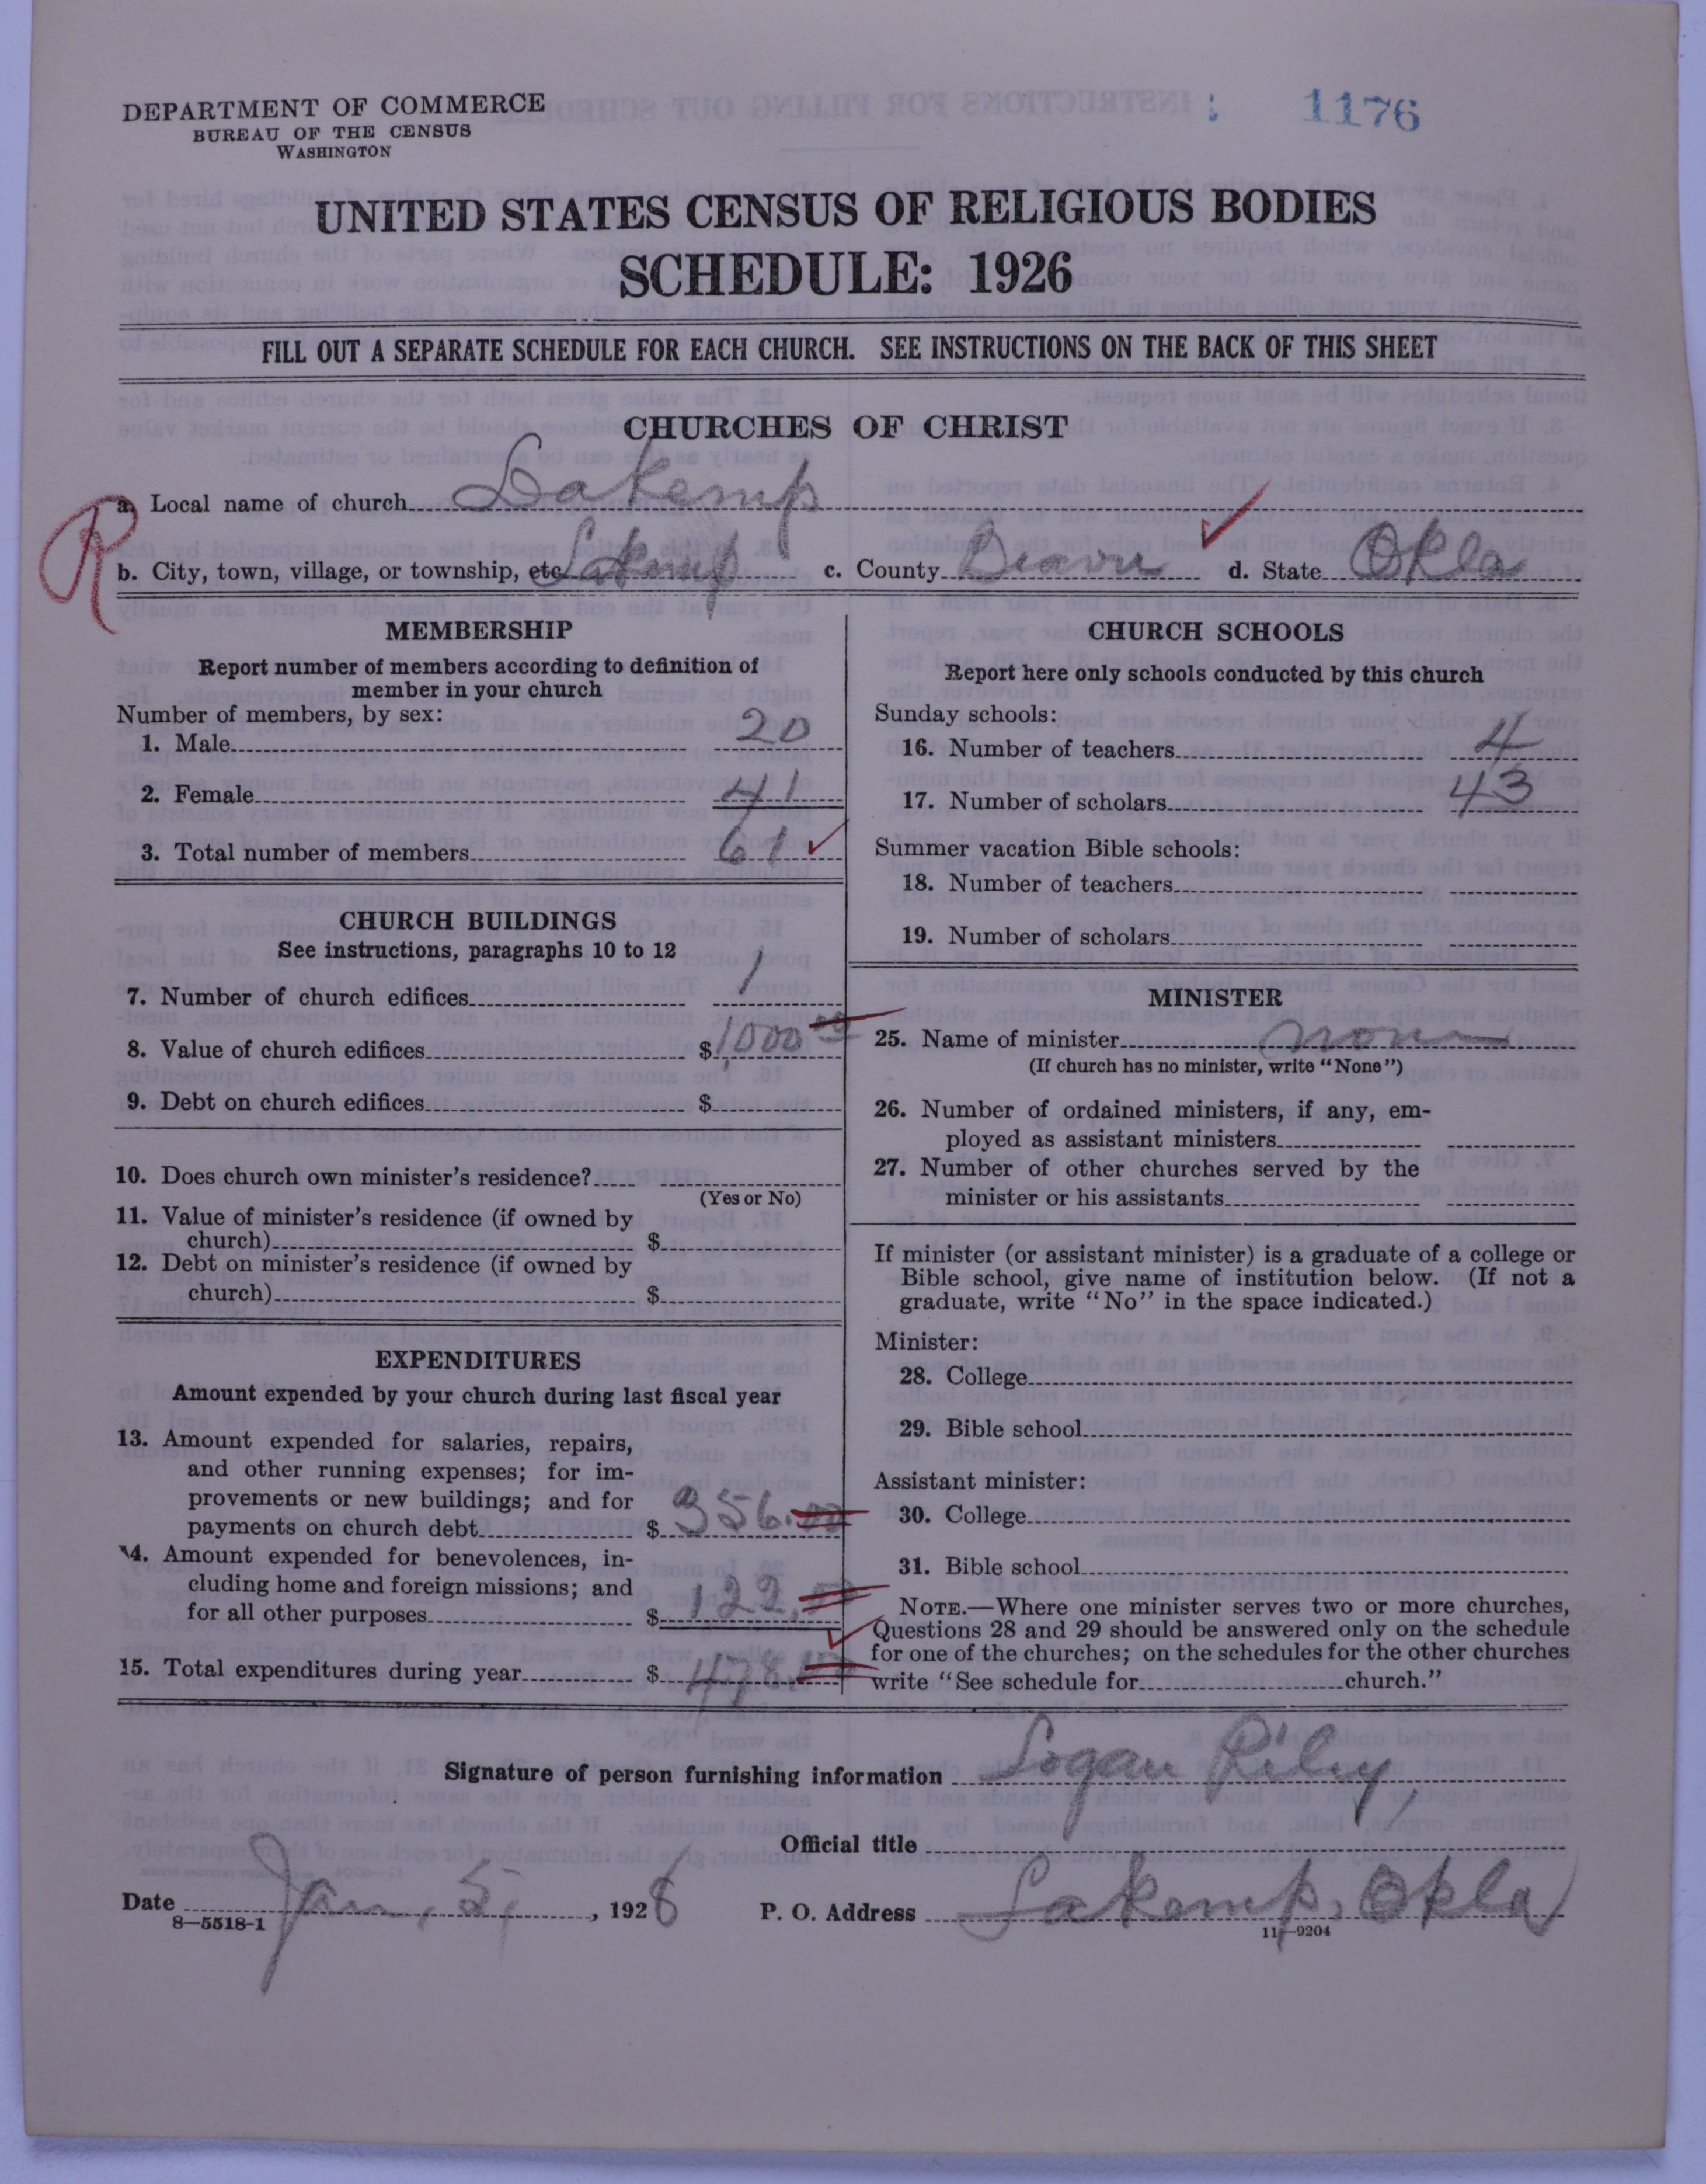 1176
DEPARTMENT OF COMMERCE
BUREAU OF THE CENSUS
WASHINGTON
UNITED STATES CENSUS OF RELIGIOUS BODIES
SCHEDULE: 1926
FILL OUT A SEPARATE SCHEDULE FOR EACH CHURCH. SEE INSTRUCTIONS ON THE BACK OF THIS SHEET
CHURCHES OF CHRIST
R
a. Local name of church Lakemp
b. City, town, village, or township, etc. Lakemp c. County Beaver d. State Okla
MEMBERSHIP
Report number of members according to definition of
member in your church
Number of members, by sex:
1. Male 20
2. Female 41
3. Total number of members 61
CHURCH BUILDINGS
See instructions, paragraphs 10 to 12
7. Number of church edifices 1
8. Value of church edifices $1000 00
9. Debt on church edifices $
10. Does church own minister's residence?
(Yes or No)
11. Value of minister's residence (if owned by
church) $
12. Debt on minister's residence (if owned by
church) $
EXPENDITURES
Amount expended by your church during last fiscal year
13. Amount expended for salaries, repairs,
and other running expenses; for im-
provements or new buildings; and for
payments on church debt $ 356.00
14. Amount expended for benevolences, in-
cluding home and foreign missions; and
for all other purposes $ 122.
15. Total expenditures during year $ 478.
CHURCH SCHOOLS
Report here only schools conducted by this church
Sunday schools:
16. Number of teachers 4
17. Number of scholars 43
Summer vacation Bible schools:
18. Number of teachers
19. Number of scholars
MINISTER
25. Name of minister none
(If church has no minister, write "None")
26. Number of ordained ministers, if any, em-
ployed as assistant ministers
27. Number of other churches served by the
minister or his assistants
If minister (or assistant minister) is a graduate of a college or
Bible school, give name of institution below. (If not a
graduate, write "No" in the space indicated.)
Minister:
28. College
29. Bible school
Assistant minister:
30. College
31. Bible school
NOTE.—Where one minister serves two or more churches,
Questions 28 and 29 should be answered only on the schedule
for one of the churches; on the schedules for the other churches
write "See schedule for church."
Signature of person furnishing information Logan Riley,
Official title
Date Jan, 5, , 1928 P. O. Address Lakemp, Okla
8—5518-1
11—9204